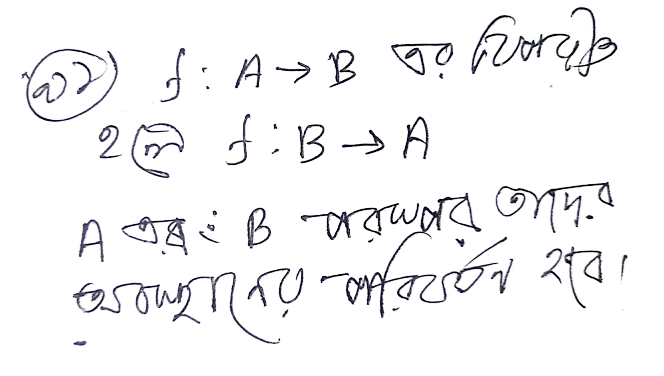 f : A → B এর বিপরীত
হলে f : B → A
A এবং B পরস্পর তাদের
অবস্থানের পরিবর্তন হবে।